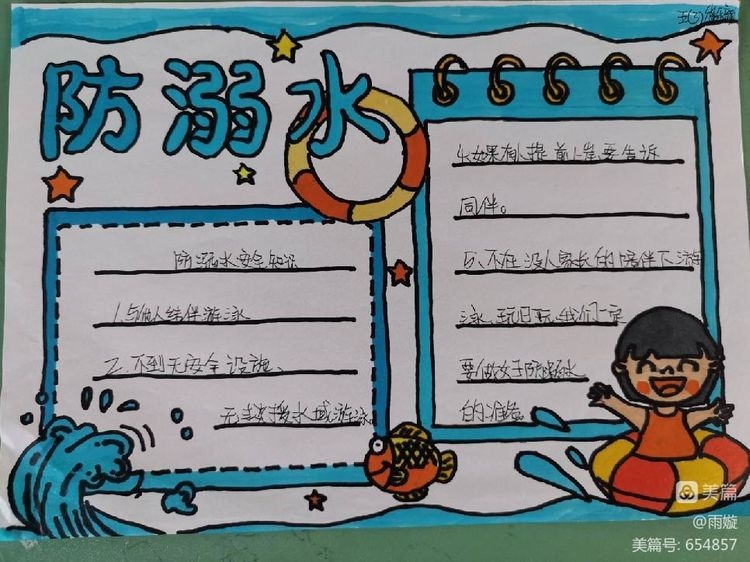 五(3)
防溺水
防溺水安全知识
1.与他人结伴游泳
2.不到无安全设施、
无法救援水域游泳。
4.如果有人提前上岸,要告诉
同伴。
5、不在没人家长的陪伴下游
泳,玩归玩,我们一定
要做好防溺水
的准备。
美篇
@雨璇
美篇号: 654857